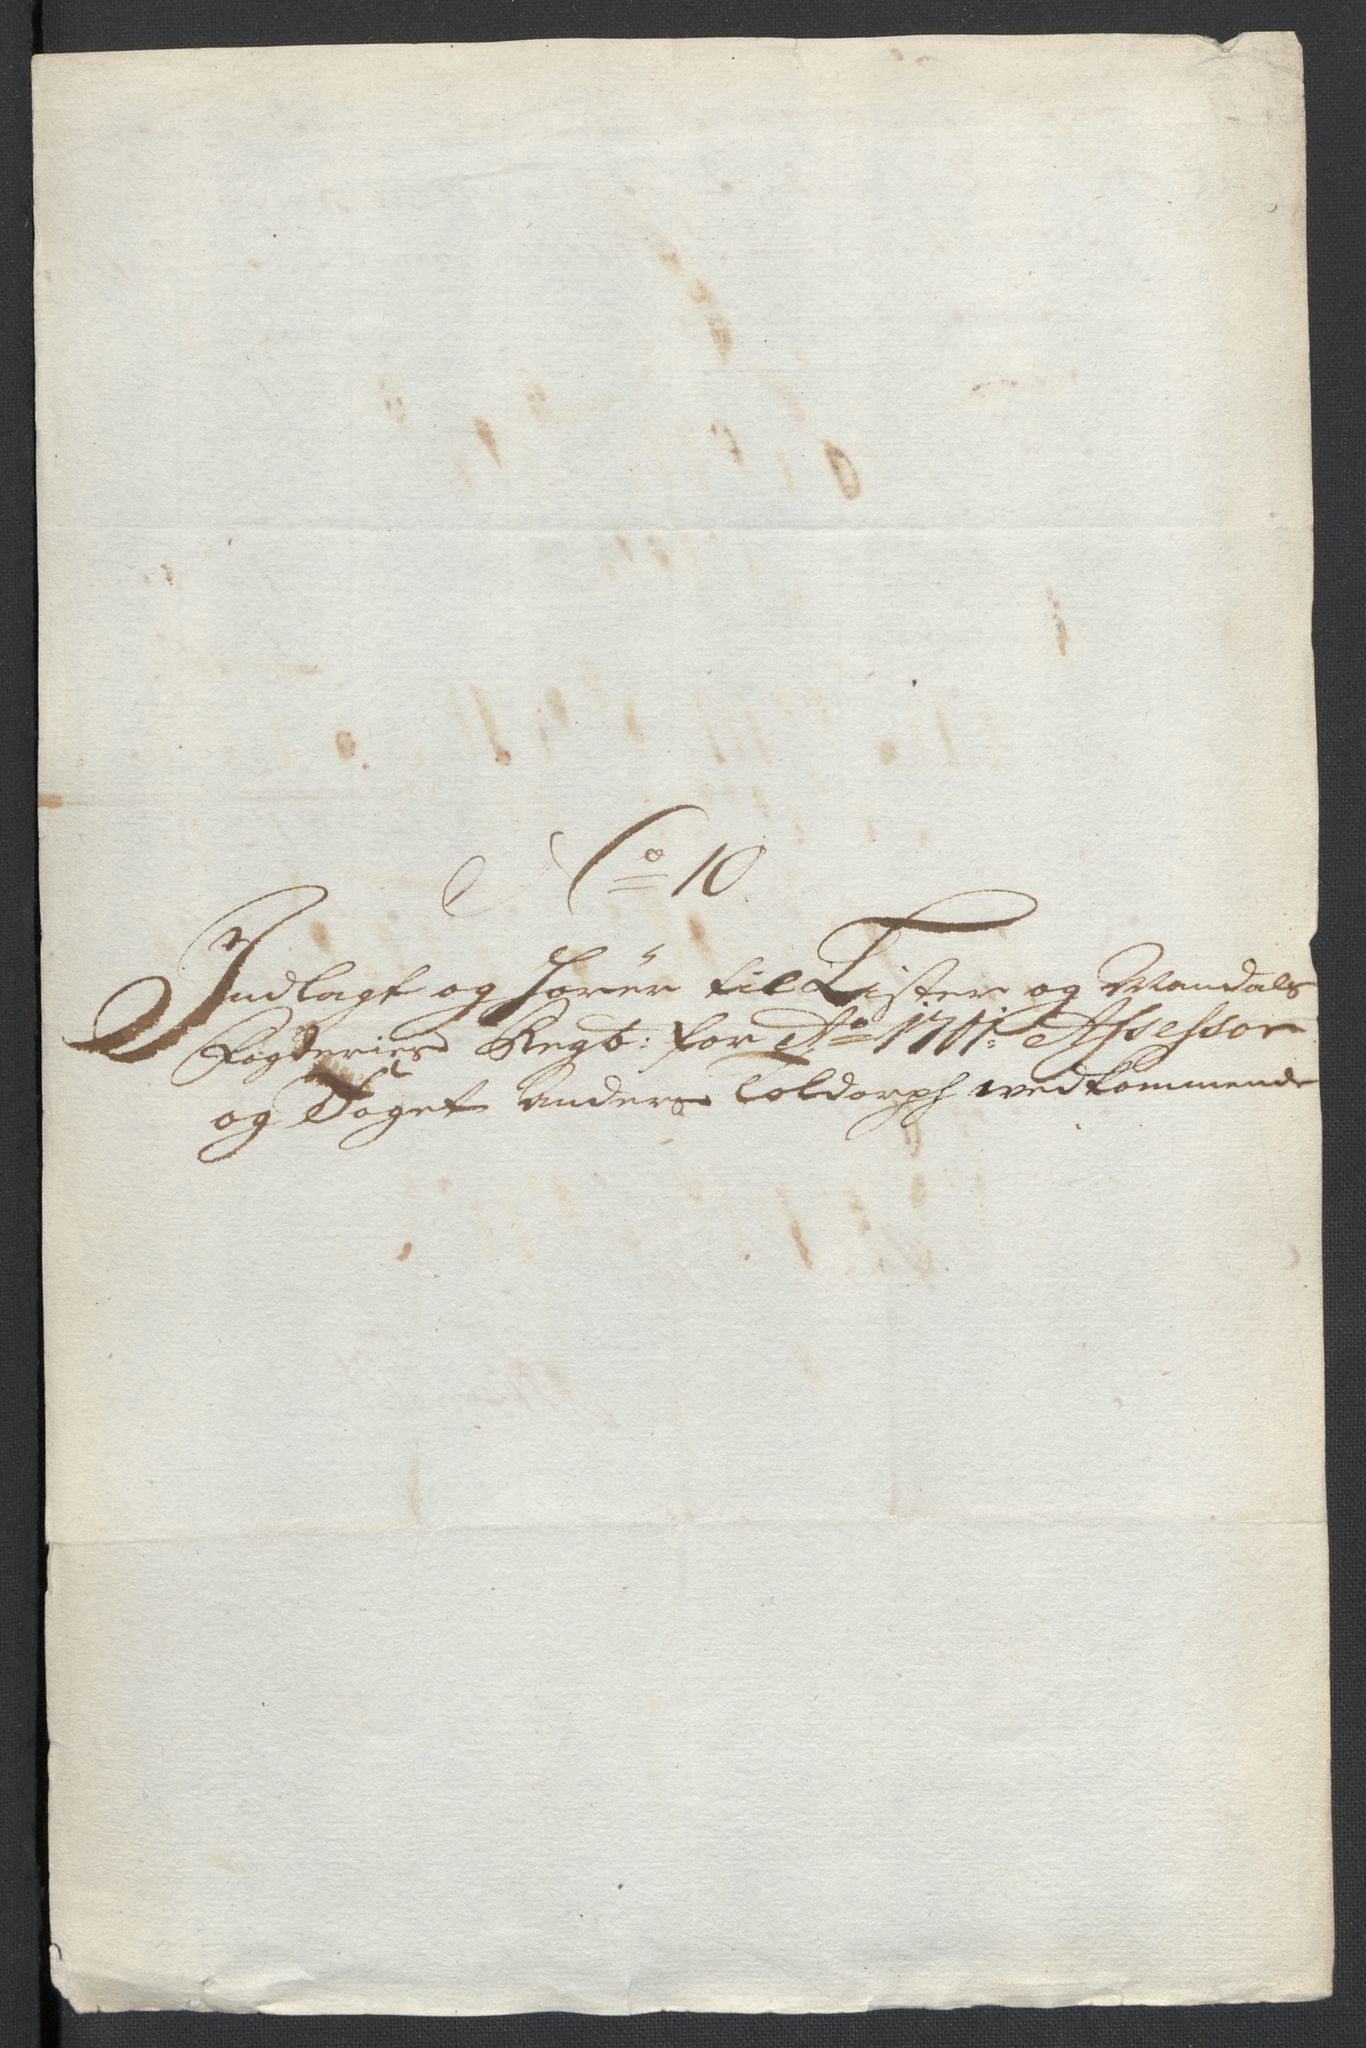 No 10
Indlagt og hører til Lister og Mandals
Fogderies Regb: for Ao 1711: Assessor
og Foget Anders Toldorph vedkommende